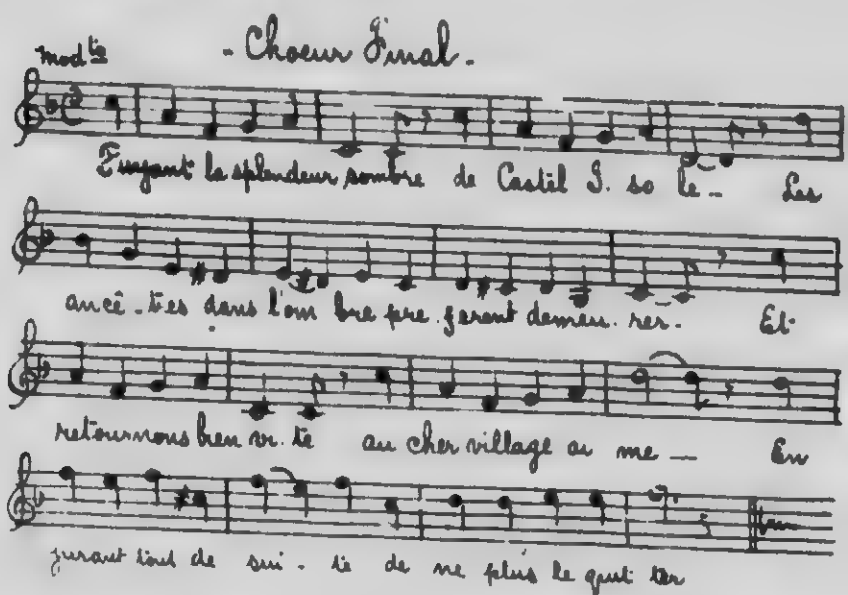 - Choeur Final -
Mod to
Fuyant la splendeur sombre de Castil S. so le - Les
ancê - tres dans l'om bre pre. ferent demeu. rer - Et
retournons bien vi. te au cher village ai me - En
jurant tout de sui - te de ne plus le quit ter